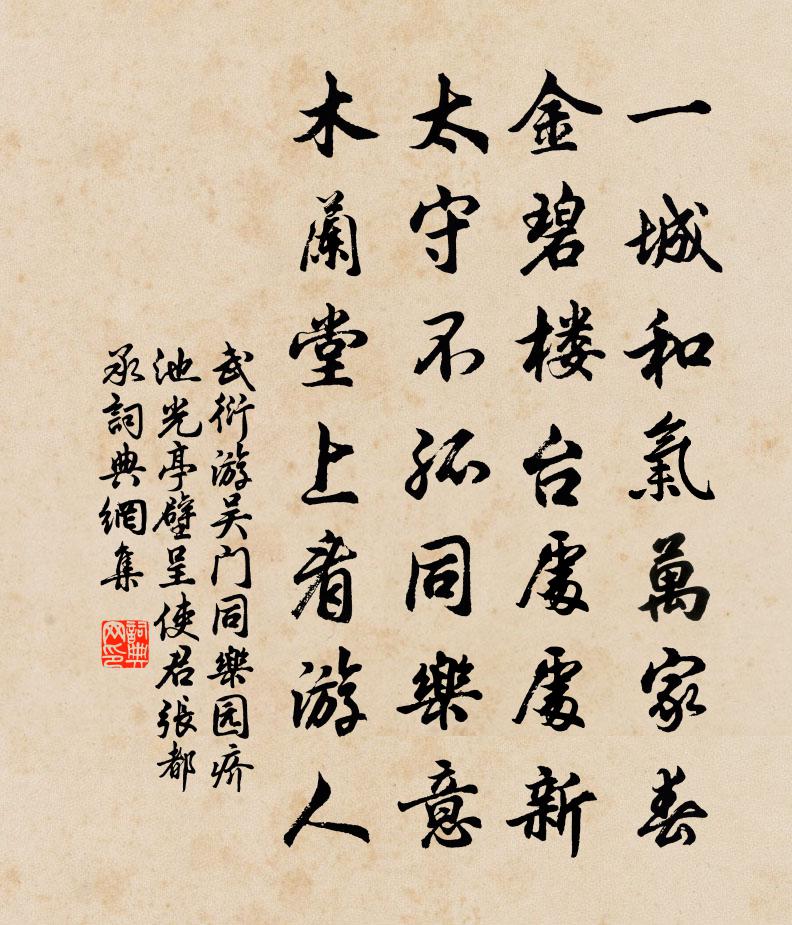 一城和氣萬家春
金碧楼台處處新
太守不孤同樂意
木蘭堂上看游人
武衍游吴门同樂园疥
池光亭壁呈使君張都
承詞典網集
詞典
网印